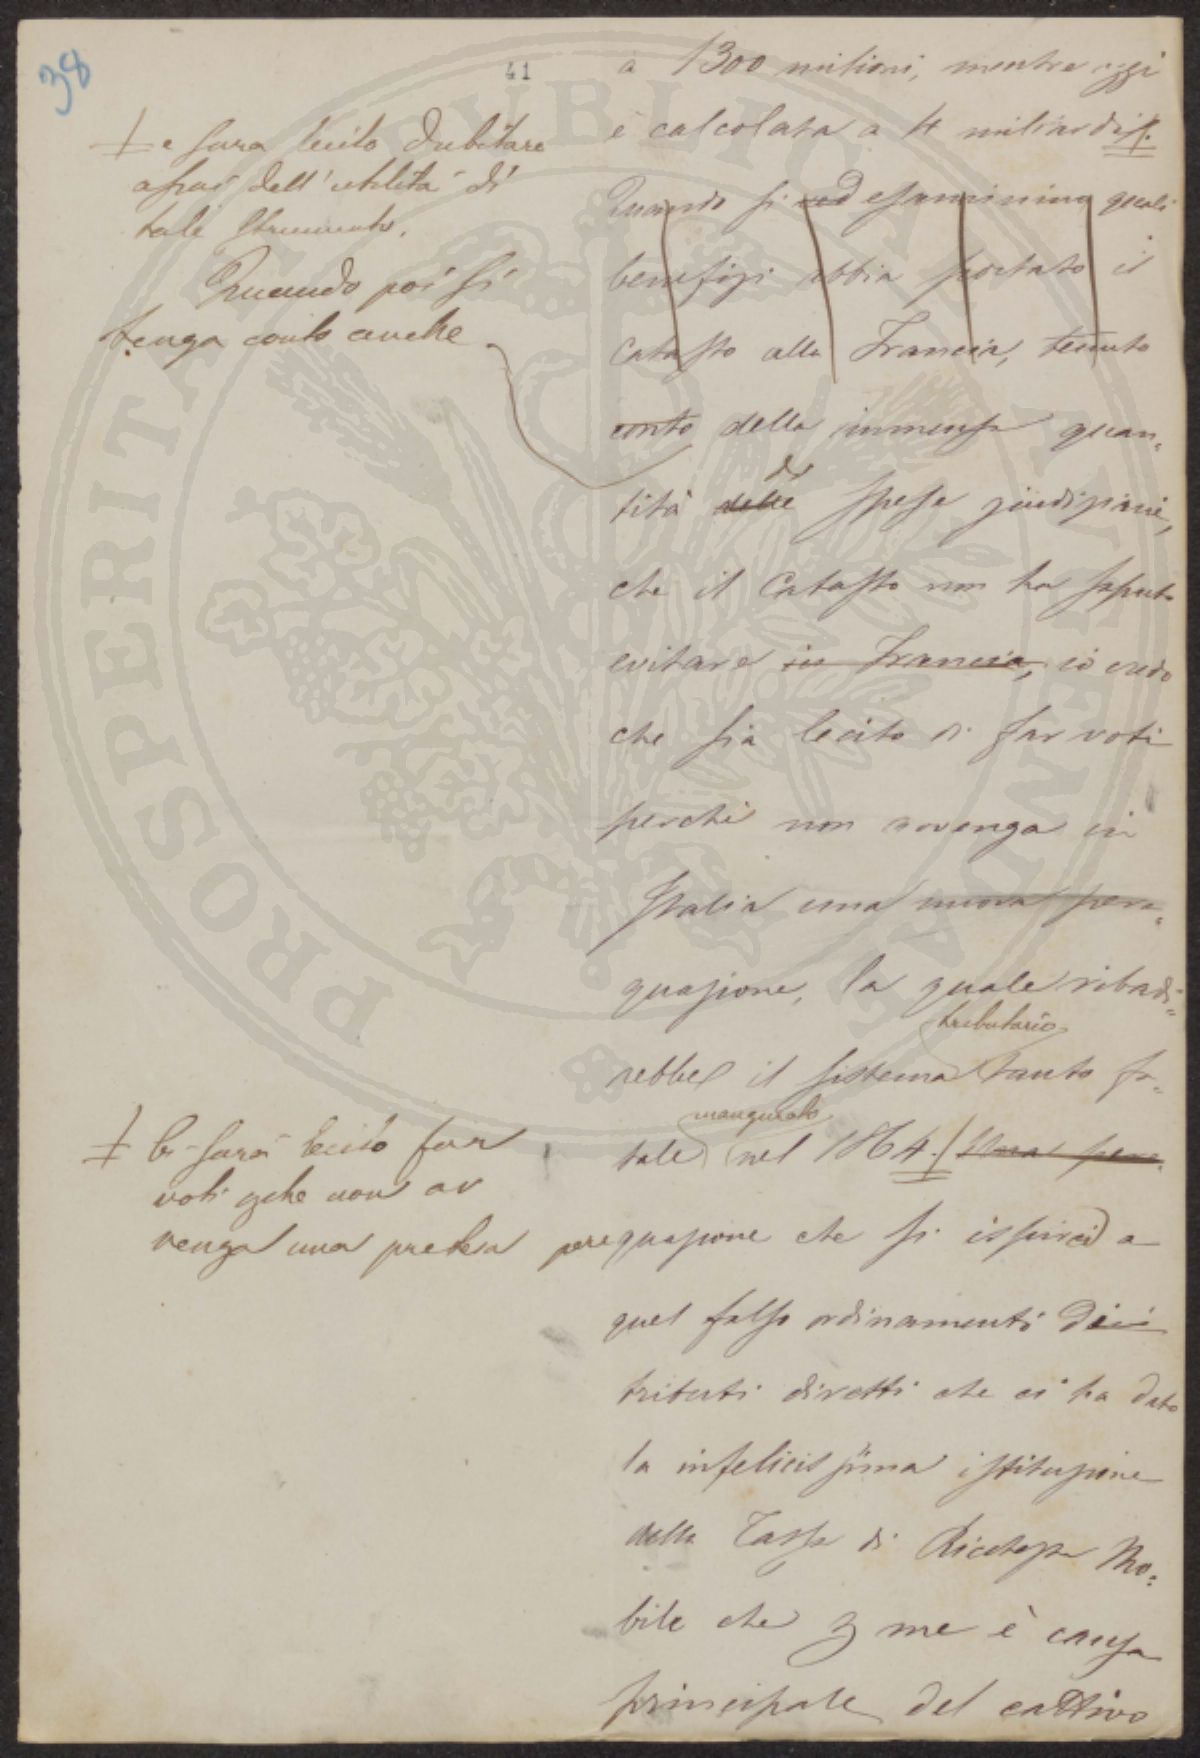 38
41
a 1300 milioni, mentre oggi
è calcolata a 4 miliardi.
Quando si ad esaminino quali
benefizi abbia portato il
Catasto alla Francia, tenuto
conto della immensa quan=
tità delle di spese giudiziarie,
che il Catasto non ha saputo
evitare in Francia, io credo
che sia lecito di far voti
perchè non avvenga in
Italia una nuova pere=
quazione, la quale ribadi=
rebbe il sistema tributario tanto fa=
tale inaugurato nel 1864. Una pere=
quazione che si ispiri a
quel falso ordinamento dei
tributi diretti che ci ha dato
la infelicissima istituzione
della Tassa di Ricchezza Mo=
bile che per me è causa
principale del cattivo
e sarà lecito dubitare
assai dell'utilità di
tale strumento.
Quando poi si
tenga conto anche
Ci sarà lecito far
voti che non av
venga una pretesa pere